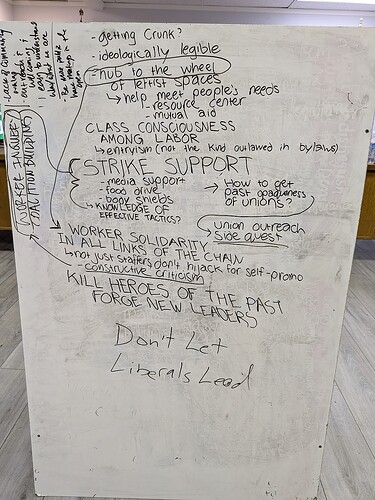 - getting Crunk?
- ideologically legible
- hub to the wheel
of leftist spaces
↳ help meet people's needs
- resource center
- mutual aid
CLASS CONSCIOUSNESS
AMONG LABOR
↳ entryism (not the kind outlawed in bylaws)
STRIKE SUPPORT
- media support
- food drive
- body shields
↳ KNOWLEDGE OF
EFFECTIVE TACTICS?
→ How to get
past opaqueness
of unions?
union outreach
side quest
WORKER SOLIDARITY
IN ALL LINKS OF THE CHAIN
↳ not just staffers don't hijack for self-promo
- constructive criticism
KILL HEROES OF THE PAST
FORGE NEW LEADERS
Don't Let
Liberals Lead
Lack of community
- outreach
easy to understand
what we are
- be more public
open
WORKER INQUEST
COALITION BUILDING